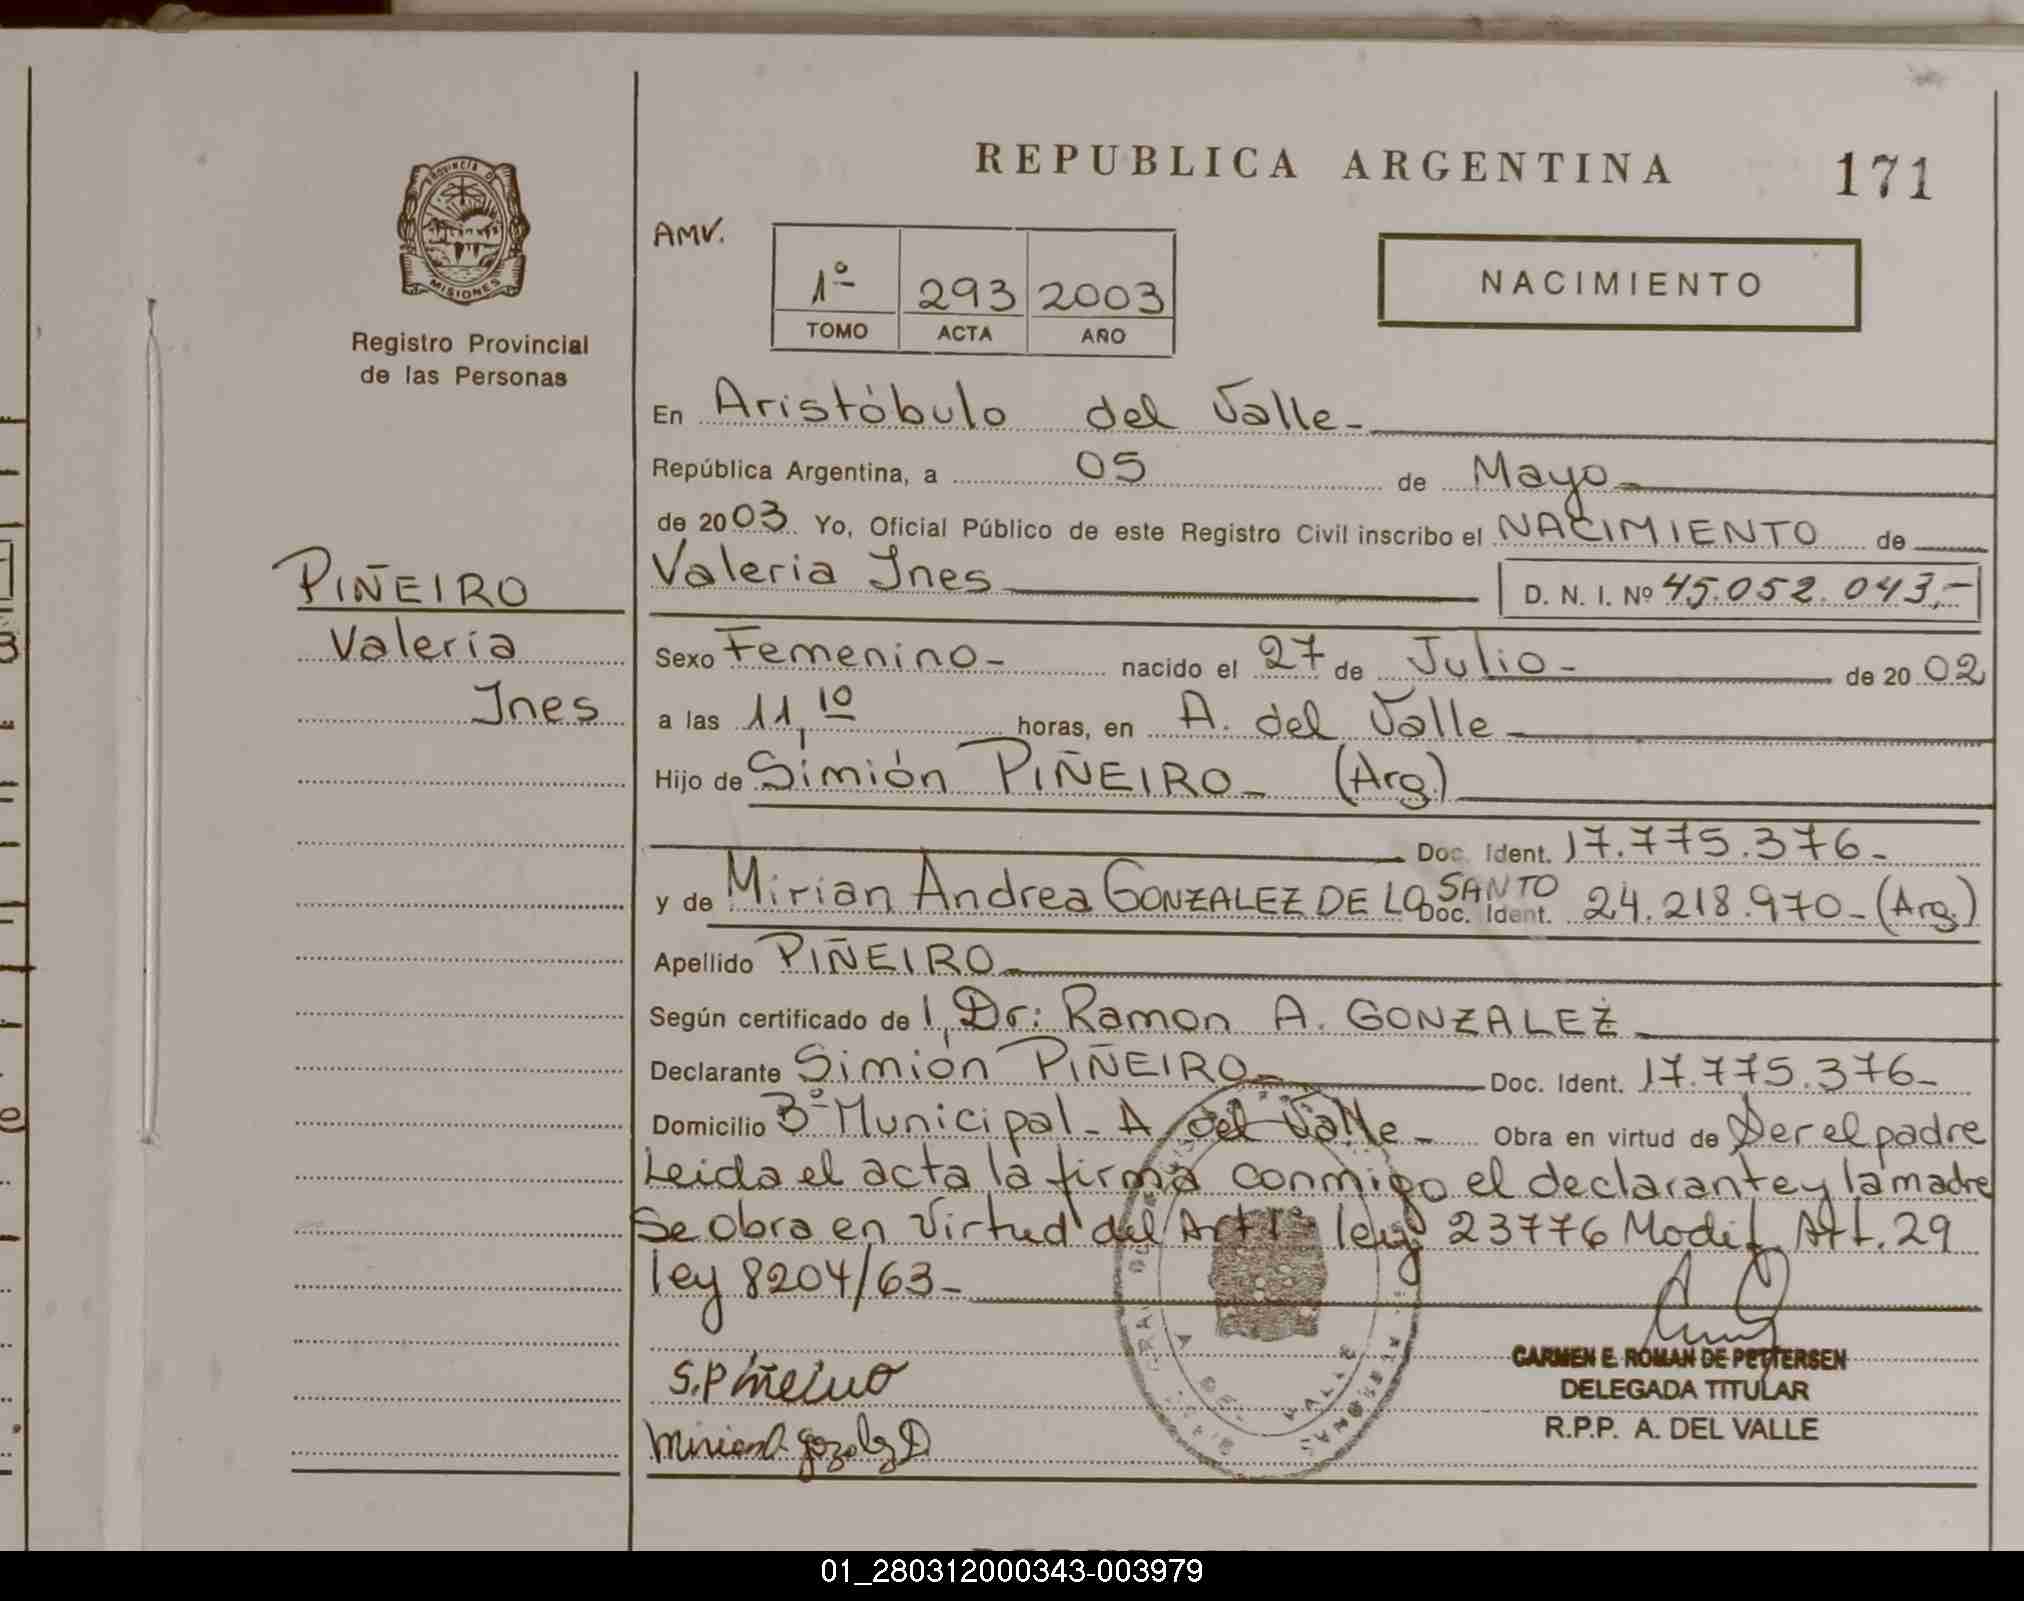 REPUBLICA ARGENTINA
171
PROVINCIA DE
MISIONES
Registro Provincial
de las Personas
AMV.
1º 293 2003
TOMO ACTA AÑO
NACIMIENTO
En Aristóbulo del Valle-
República Argentina, a 05 de Mayo
de 2003 Yo, Oficial Público de este Registro Civil inscribo el NACIMIENTO de
Valeria Ines D. N. I. Nº 45.052.043,-
PIÑEIRO
Valeria
Ines
Sexo Femenino- nacido el 27 de Julio- de 2002
a las 11,10 horas, en A. del Valle
Hijo de Simión PIÑEIRO- (Arg.)
Doc. Ident. 17.775.376-
y de Mirian Andrea GONZALEZ DE LOS SANTO Doc. Ident. 24.218.970-(Arg.)
Apellido PIÑEIRO
Según certificado de 1, Dr: Ramon A. GONZALEZ
Declarante Simión PIÑEIRO- Doc. Ident. 17.775.376-
Domicilio Bº Municipal- A. del Valle- Obra en virtud de Ser el padre
Leida el acta la firma conmigo el declarante y la madre
Se obra en virtud del Art 1º ley 23776 Modif. Art. 29
ley 8204/63-
S. Piñeiro
CARMEN E. ROMAN DE PETTERSEN
DELEGADA TITULAR
R.P.P. A. DEL VALLE
01_280312000343-003979